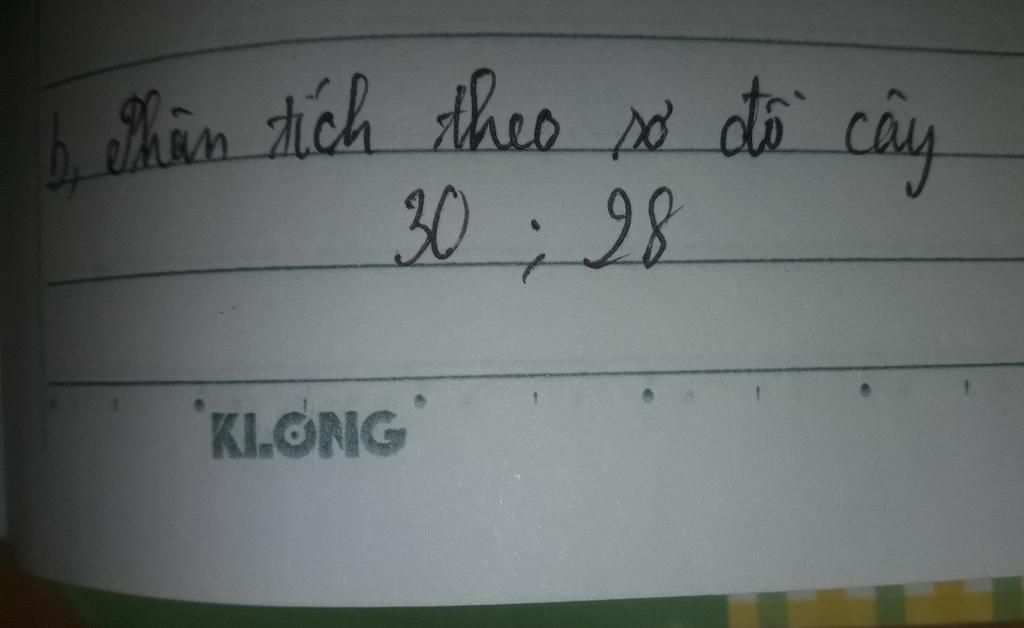 b, Phân tích theo sơ đồ cây
30 ; 28
KLONG